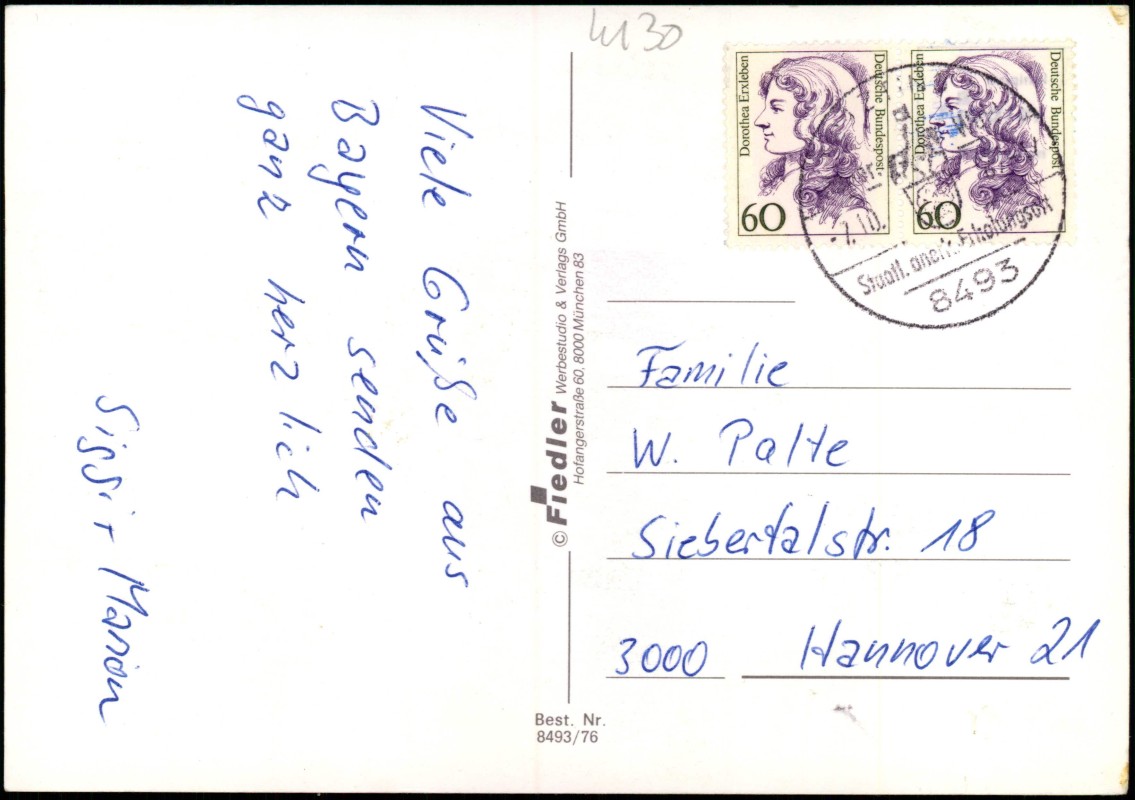 4130
Viele Grüße aus
Bayern senden
ganz herzlich
Sissi + Marion
© Fiedler Werbestudio & Verlags GmbH
Hofangerstraße 60, 8000 München 83
Best. Nr.
8493/76
Dorothea Erxleben
Deutsche Bundespost
60
Dorothea Erxleben
Deutsche Bundespost
60
-7.10.
Staatl. anerk. Erholungsort
8493
Familie
W. Palte
Siebertalstr. 18
3000 Hannover 21